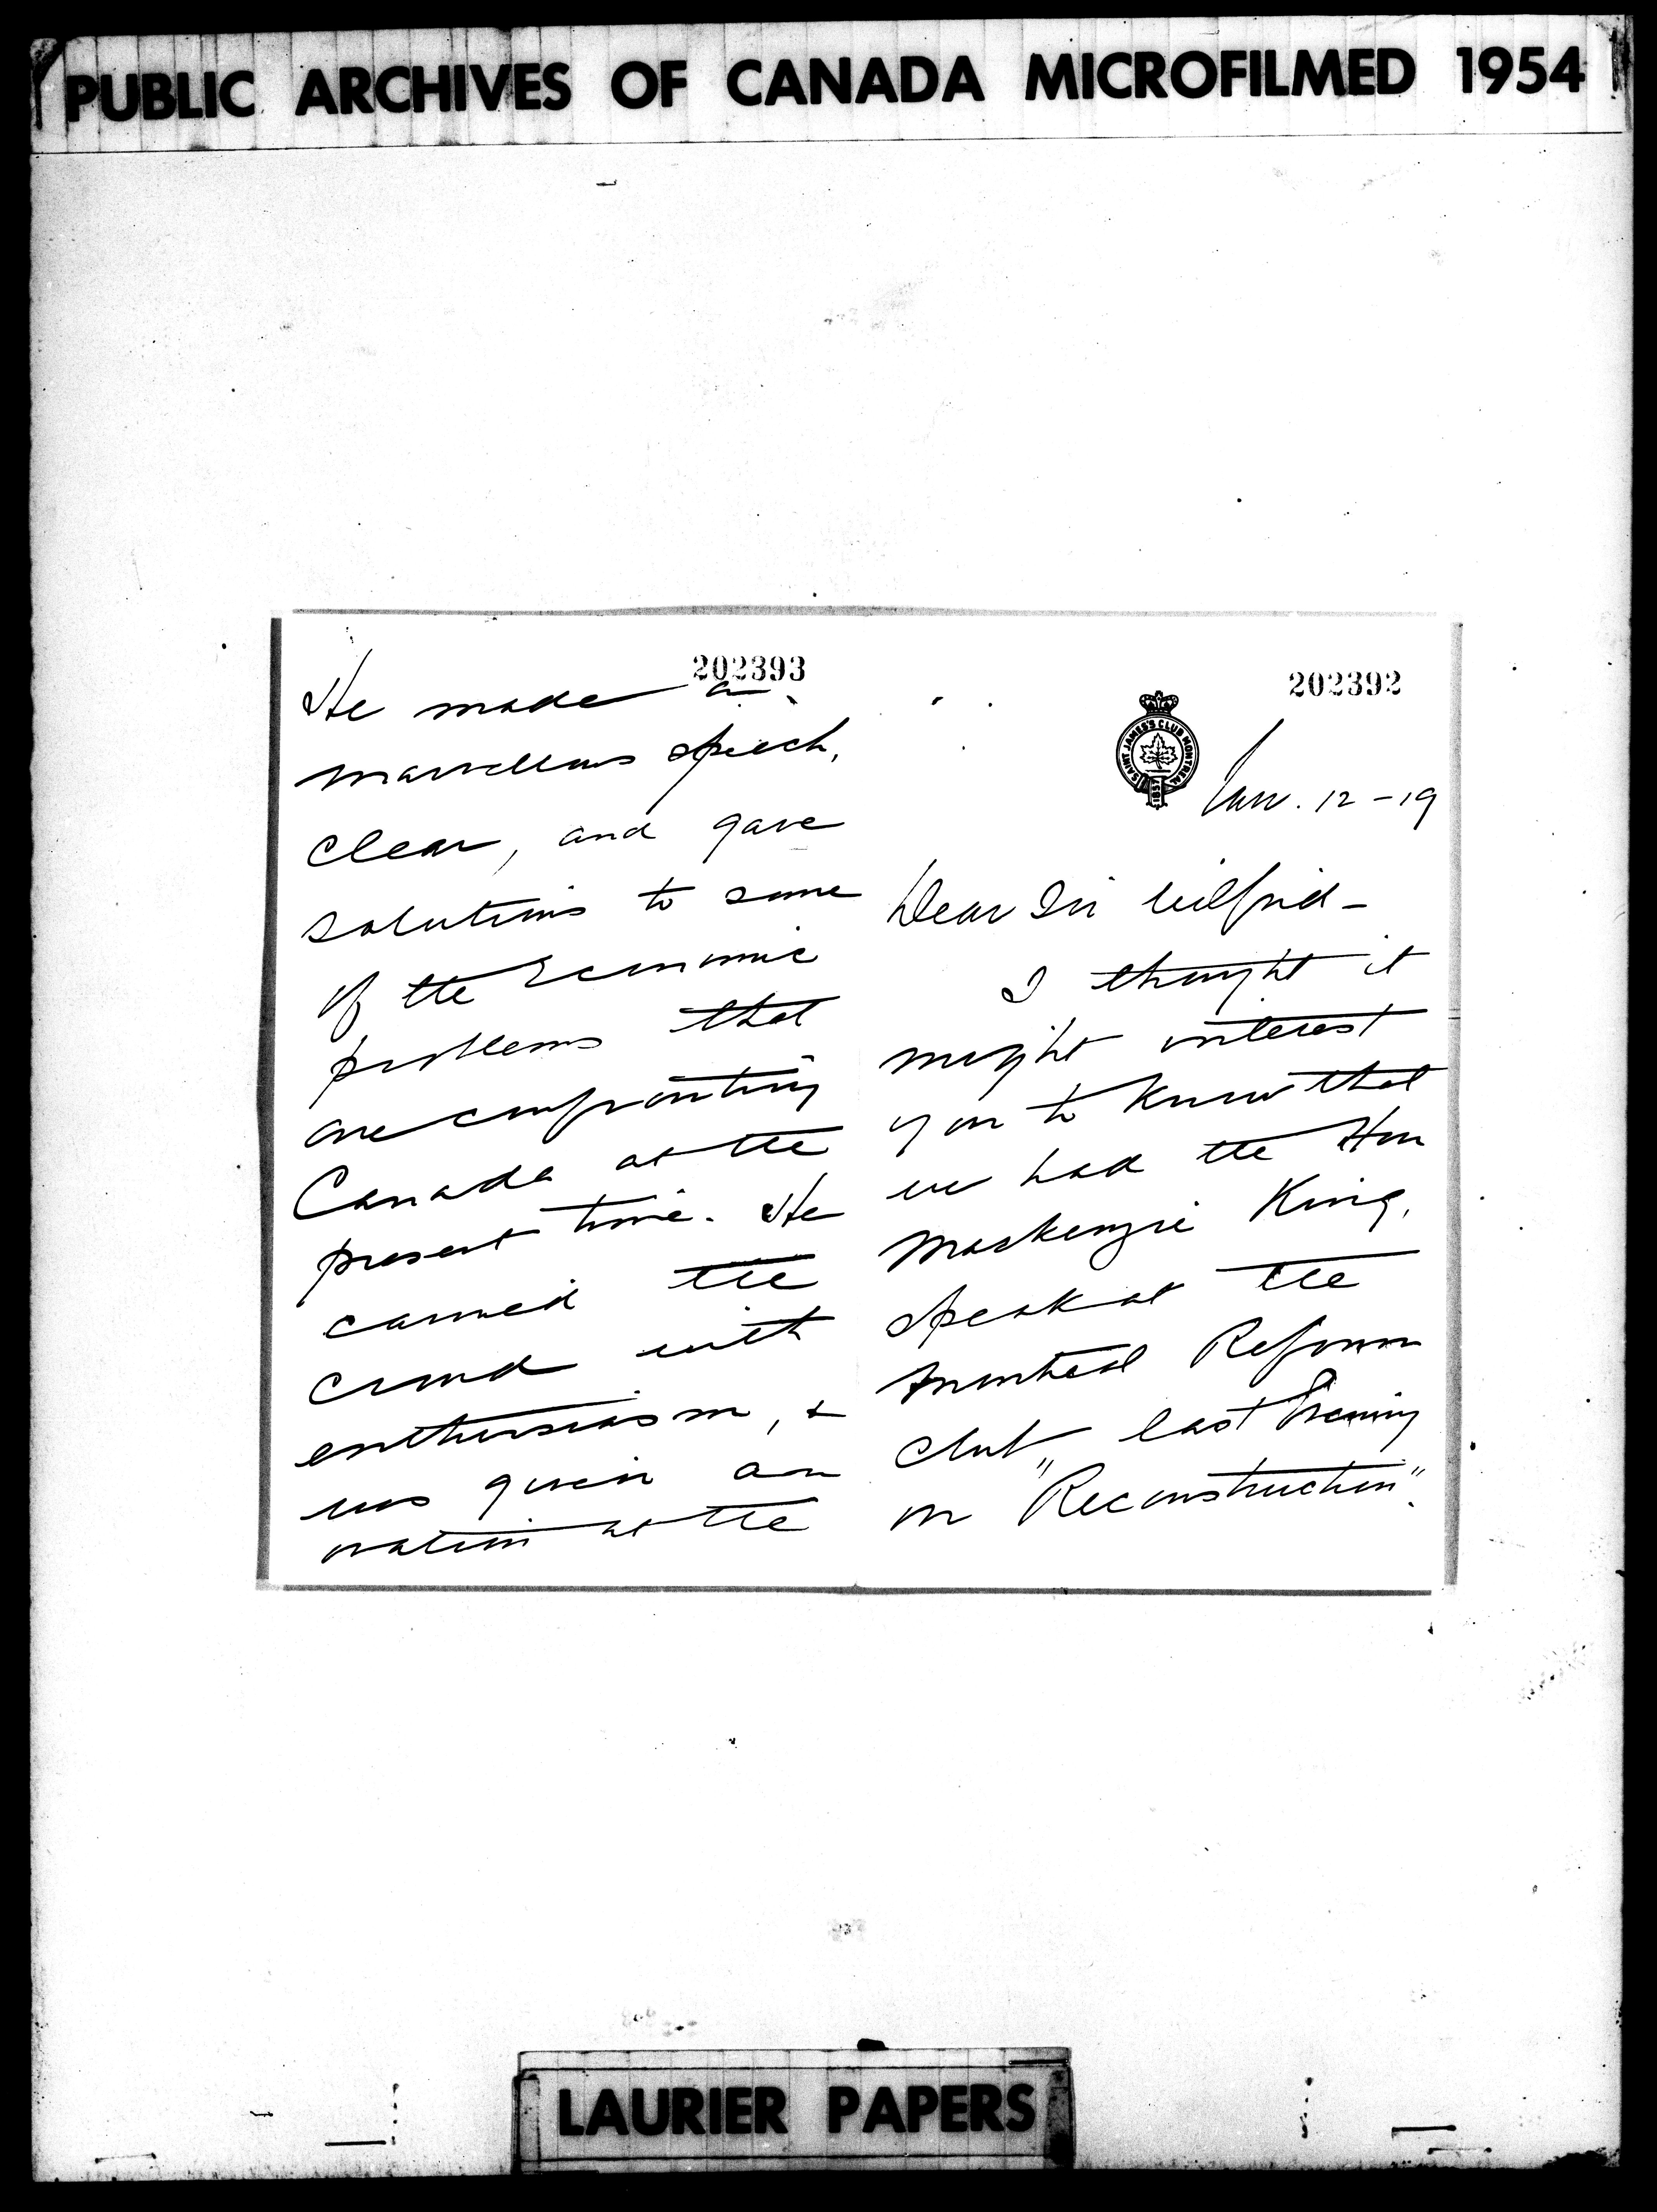 PUBLIC ARCHIVES OF CANADA MICROFILMED 1954
202392
SAINT JAMES'S CLUB MONTREAL
1857
Jan. 12-19
Dear Sir Wilfrid-
I thought it
might interest
you to know that
we had the Hon
Mackenzie King,
speak at the
Montreal Reform
Club last Evening
on "Reconstruction".
202393
He made a
marvellous speech,
clear, and gave
solutions to some
of the Economic
problems that
are confronting
Canada at the
present time. He
carried the
crowd with
enthusiasm, &
was given an
ovation at the
LAURIER PAPERS